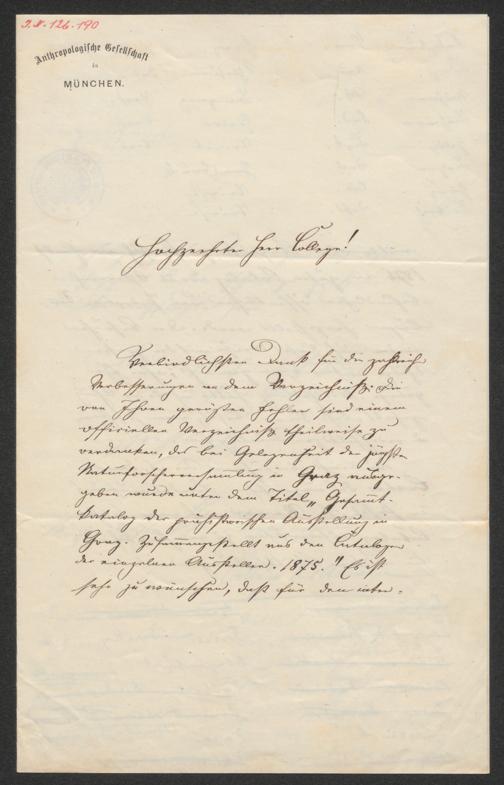 J.N. 126.190
Anthropologische Gesellschaft
in
MÜNCHEN.
Hochgeehrter Herr College!
Verbindlichsten Dank für die zahlreich
Verbesserungen an dem Verzeichniß. Die
von Ihnen gerügten Fehler sind einem
officiellen Verzeichniß theilweise zu
verdanken, das bei Gelegenheit der jüngste
Naturforscherversammlung in Graz ausge-
geben wurde unter dem Titel „Gesammt-
katalog der prähistorischen Ausstellung in
Graz. Zusammengestellt aus den Catalogen
der einzelnen Aussteller. 1875." Es ist
sehr zu wünschen, daß für den inter-